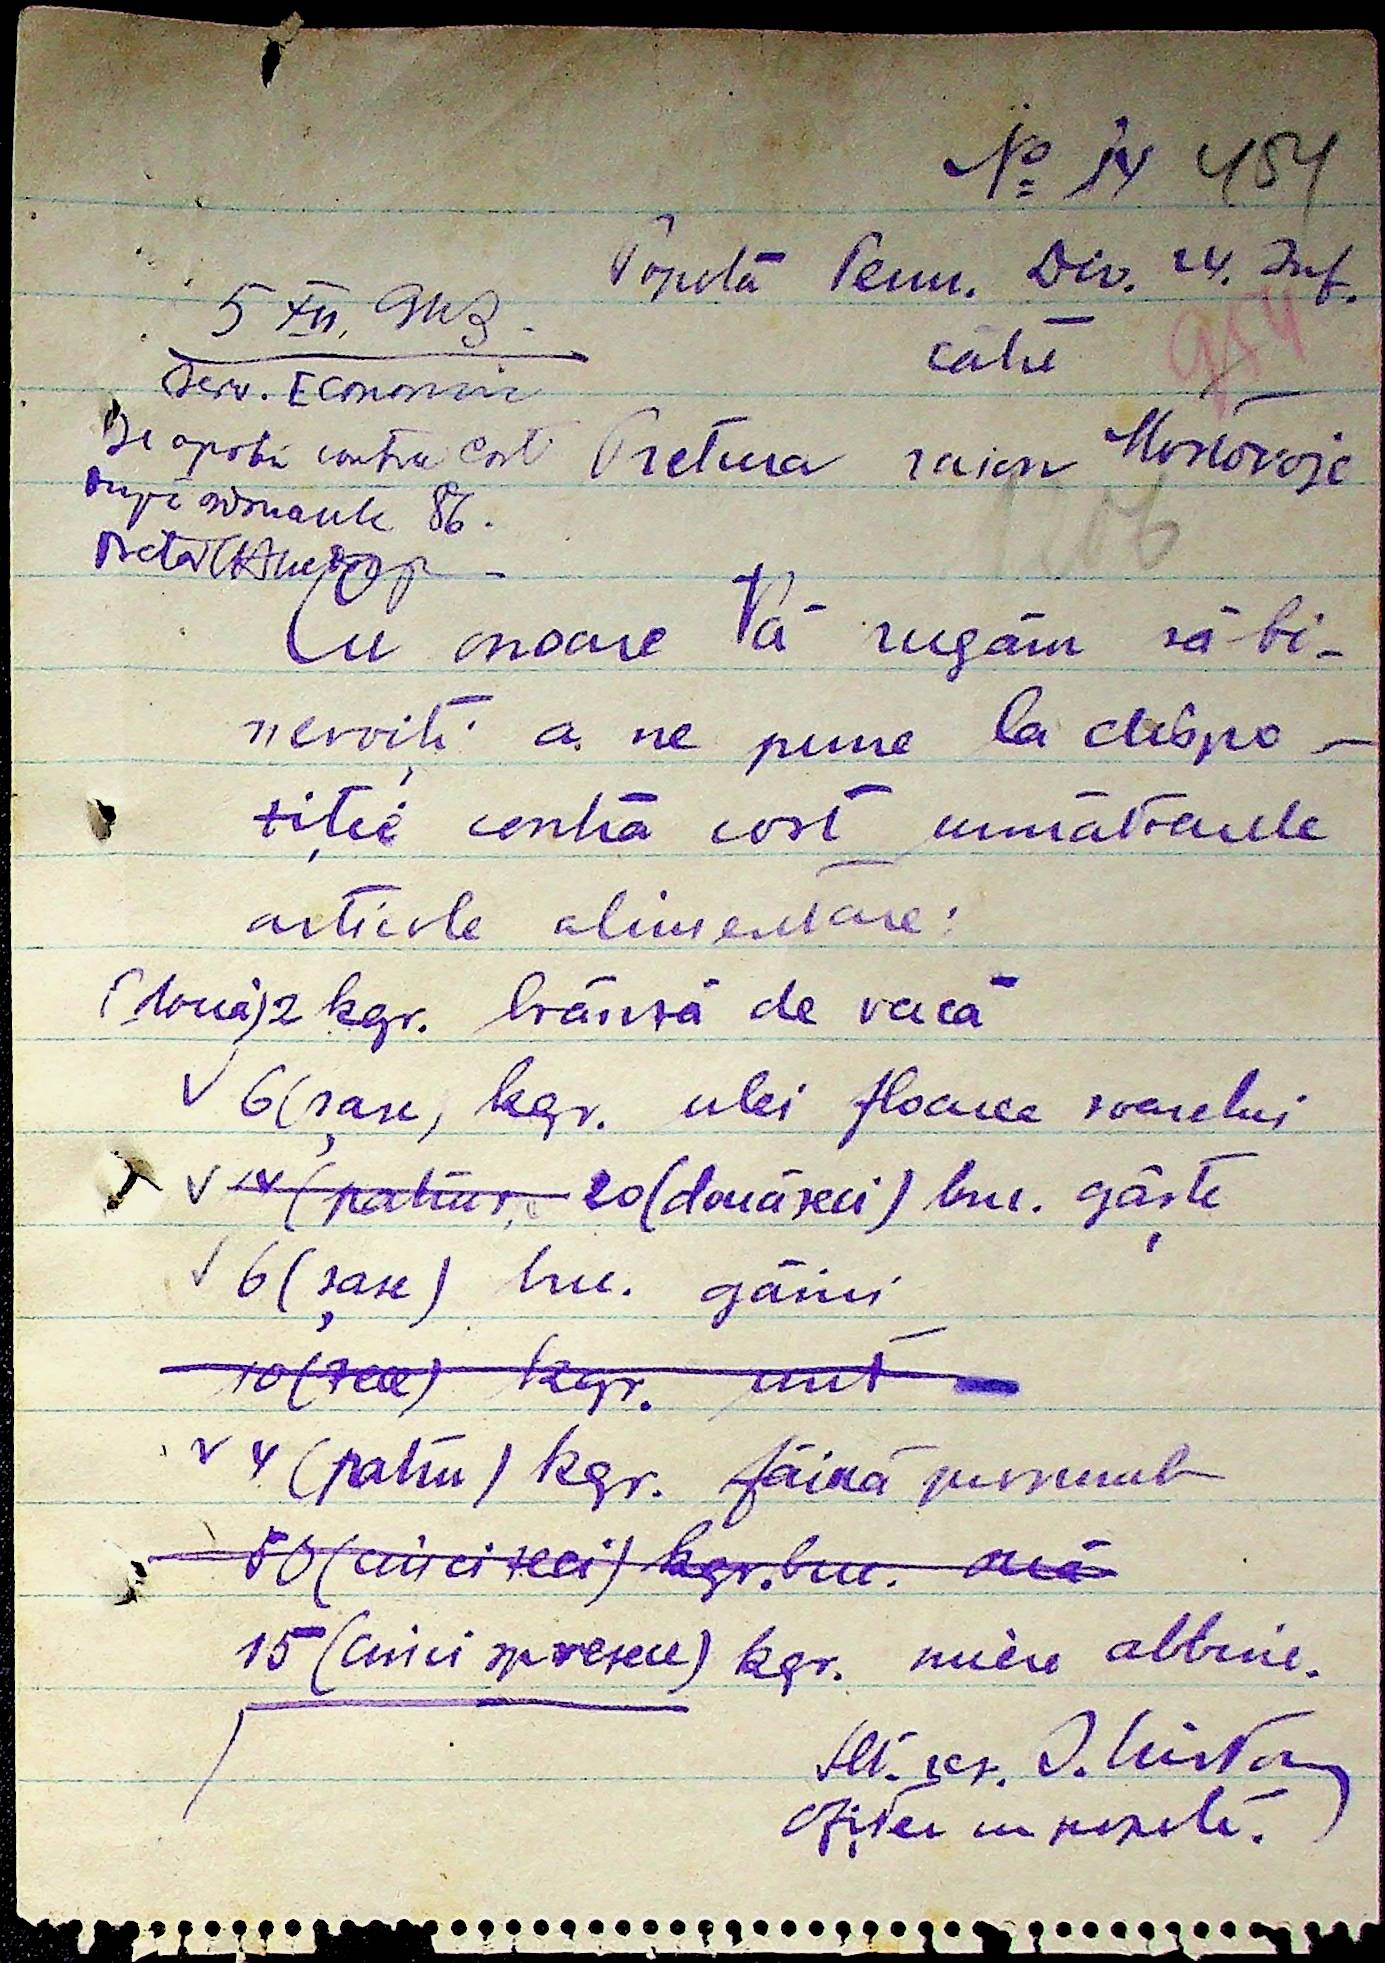 No 14 454
Popotă Dem. Div. 24. Inf.
către
954
5 XII. 943.
Serv. Economic
Se aprobă contra cost
după 86.
Pretor
Pretura raion Mostovoje
Cu onoare Vă rugăm să bi-
nevoiți a ne pune la dispo-
ziție contră cost următoarele
articole alimentare:
(două) 2 kgr. brânză de vacă
√ 6 (șase) kgr. ulei floarea soarelui
√ 14 (patrus. 20 (douăzeci) buc. gâște
√ 6 (șase) buc. găini
10 (zece) kgr. unt
√ 4 (patru) kgr. făină
50 (cincizeci) kgr. buc. ouă
15 (cinci sprezece) kgr. miere albine.
Slt. rez. I.
Ofițer cu popota.